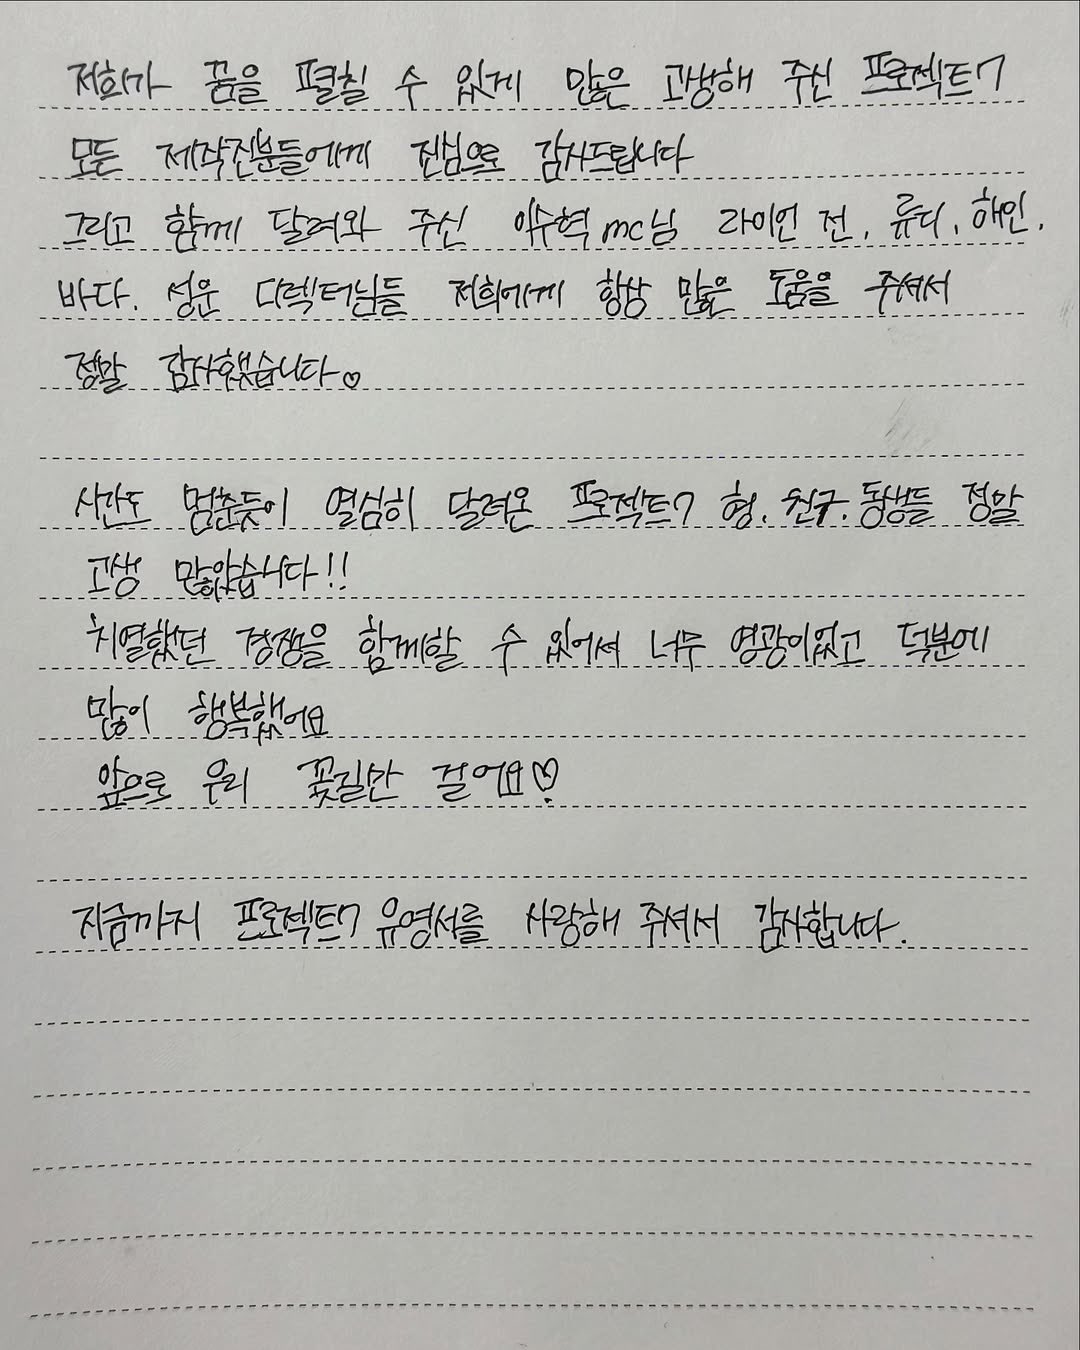 저희가 꿈을 펼칠 수 있게 많은 고생해 주신 프로젝트7
모든 제작진분들에게 진심으로 감사드립니다
그리고 함께 달려와 주신 이수혁 mc님 라이언 전, 류디, 해인,
바다, 성운 디렉터님들 저희에게 항상 많은 도움을 주셔서
정말 감사했습니다♡
시간도 멈춘듯이 열심히 달려온 프로젝트7 형, 친구, 동생들 정말
고생 많았습니다!!
치열했던 경쟁을 함께할 수 있어서 너무 영광이었고 덕분에
많이 행복했어요
앞으로 우리 꽃길만 걸어요♡
지금까지 프로젝트7 유영서를 사랑해 주셔서 감사합니다.